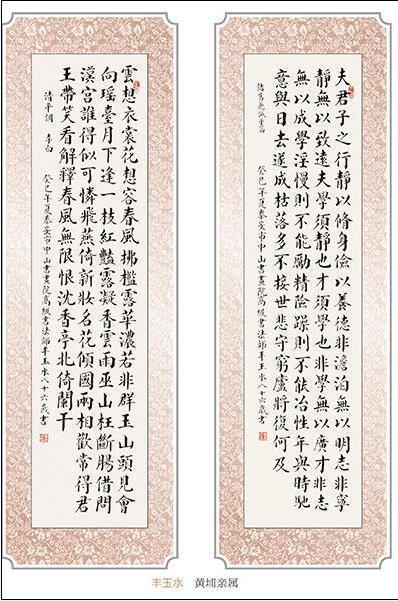 夫君子之行靜以脩身儉以養德非澹泊無以明志非寧
靜無以致遠夫學須靜也才須學也非學無以廣才非志
無以成學淫慢則不能勵精險躁則不能冶性年與時馳
意與日去遂成枯落多不接世悲守窮廬將復何及
諸葛亮誡子篇 癸巳年夏泰安市中山書畫院高級書法師丰玉水八十六歲書
雲想衣裳花想容春風拂檻露華濃若非群玉山頭見會
向瑤臺月下逢一枝紅豔露凝香雲雨巫山枉斷腸借問
漢宮誰得似可憐飛燕倚新妝名花傾國兩相歡常得君
王帶笑看解釋春風無限恨沈香亭北倚闌干
清平調 李白 癸巳年夏泰安市中山書畫院高級書法師丰玉水八十六歲書
丰玉水 黄埔亲属